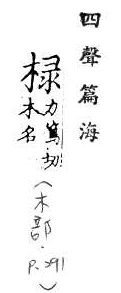 四聲篇海
椂力篤切
木名
(木部.
P.291